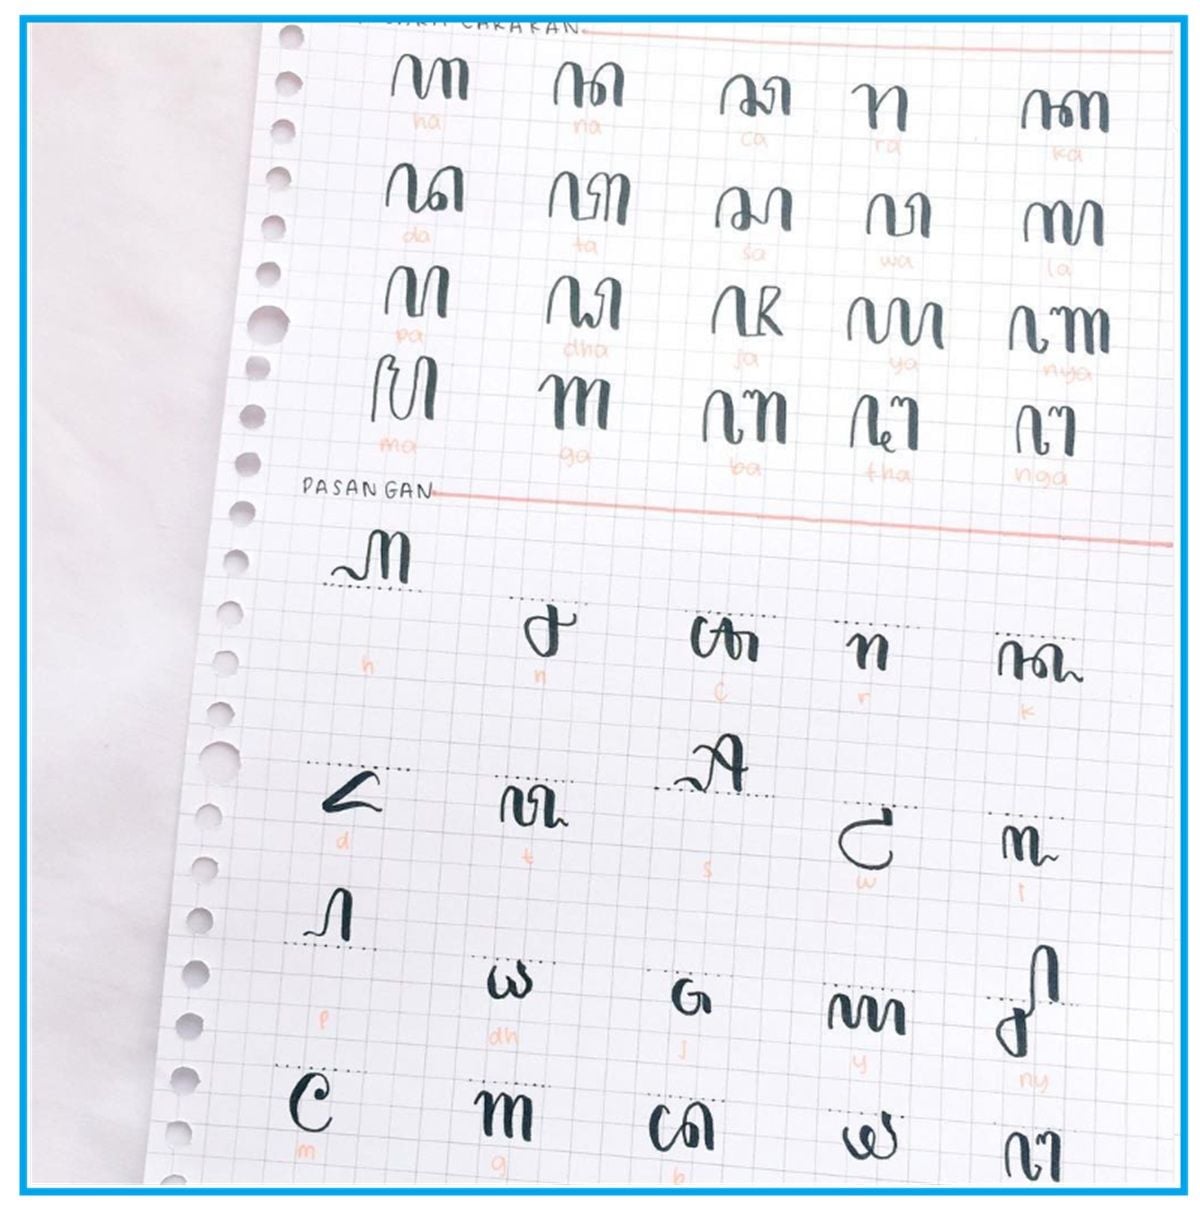 CARAKAN
ꦲ ꦤ ꦕ ꦫ ꦏ
ha na ca ra ka
ꦢ ꦠ ꦱ ꦮ ꦭ
da ta sa wa la
ꦥ ꦝ ꦗ ꦪ ꦚ
pa dha ja ya nya
ꦩ ꦒ ꦧ ꦛ ꦔ
ma ga ba tha nga
PASANGAN
꧀ꦲ ꧀ꦤ ꧀ꦕ ꧀ꦫ ꧀ꦏ
h n c r k
꧀ꦢ ꧀ꦠ ꧀ꦱ ꧀ꦮ ꧀ꦭ
d t s w l
꧀ꦥ ꧀ꦝ ꧀ꦗ ꧀ꦪ ꧀ꦚ
p dh j y ny
꧀ꦩ ꧀ꦒ ꧀ꦧ ꧀ꦛ ꧀ꦔ
m g b